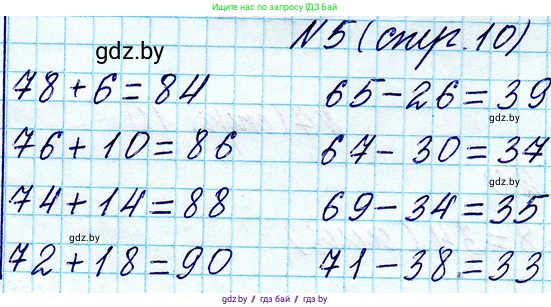 Присоединяйся к обучению
по запросу в поиске ГДЗ
gdz.by
№5 (стр. 10)
78 + 6 = 84
65 − 26 = 39
76 + 10 = 86
67 − 30 = 37
gdz.by
74 + 14 = 88
69 − 34 = 35
gdz.by
72 + 18 = 90
71 − 38 = 33
gdz.by / гдз бай / gdz.by